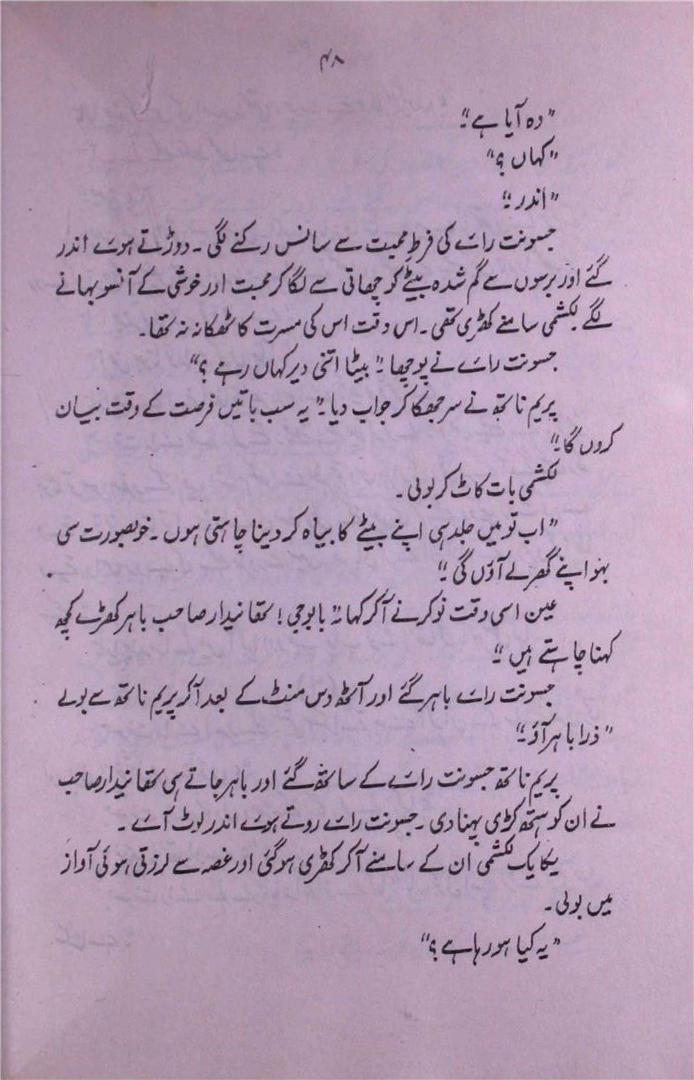 ۴۸
"وہ آیا ہے۔"
"کہاں؟"
"اندر۔"
جسونت رائے کی فرطِ محبت سے سانس رکنے لگی۔ دوڑتے ہوئے اندر
گئے اور برسوں سے گم شدہ بیٹے کو چھاتی سے لگا کر محبت اور خوشی کے آنسو بہانے
لگے۔ لکشمی سامنے کھڑی تھی۔ اس وقت اس کی مسرت کا ٹھکانہ نہ تھا۔
جسونت رائے نے پوچھا۔ "بیٹا اتنی دیر کہاں رہے؟"
پریم ناتھ نے سر جھکا کر جواب دیا۔ "یہ سب باتیں فرصت کے وقت بیان
کروں گا۔"
لکشمی بات کاٹ کر بولی۔
"اب تو میں جلد ہی اپنے بیٹے کا بیاہ کر دینا چاہتی ہوں۔ خوبصورت سی
بہو اپنے گھر لے آؤں گی۔"
عین اسی وقت نوکر نے آکر کہا۔ "بابوجی! تھانیدار صاحب باہر کھڑے کچھ
کہنا چاہتے ہیں۔"
جسونت رائے باہر گئے اور آٹھ دس منٹ کے بعد آکر پریم ناتھ سے بولے
"ذرا باہر آؤ۔"
پریم ناتھ جسونت رائے کے ساتھ گئے اور باہر جاتے ہی تھانیدار صاحب
نے ان کو ہتھکڑی پہنا دی۔ جسونت رائے روتے ہوئے اندر لوٹ آئے۔
یکایک لکشمی ان کے سامنے آکر کھڑی ہوگئی اور غصہ سے لرزتی ہوئی آواز
میں بولی۔
"یہ کیا ہو رہا ہے؟"